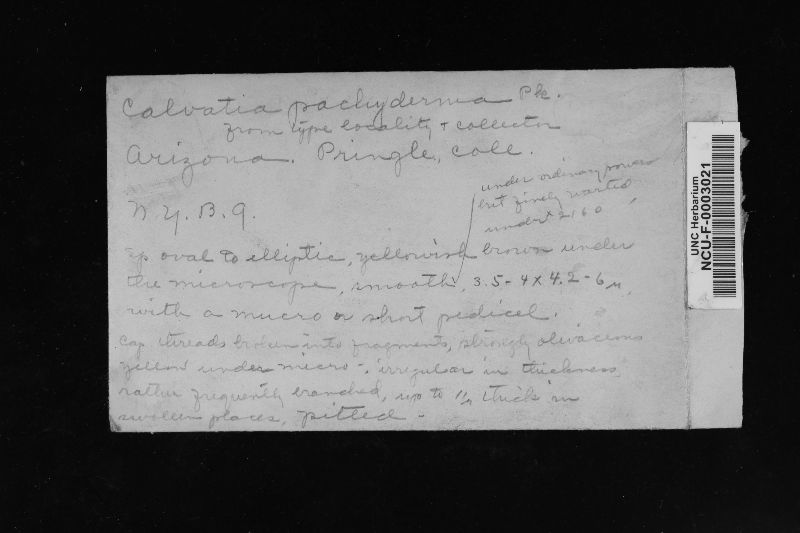 Calvatia pachyderma Pk.
from type locality + collector
Arizona. Pringle, coll.
N. Y. B. G.
under ordinary powers
but finely warted
under × 2160
sp oval to elliptic, yellowish brown under
the microscope, smooth, 3.5-4 X 4.2-6 μ,
with a mucro or short pedicel.
Cap. threads broken into fragments, strongly olivaceous
yellow under micro-, irregular in thickness,
rather frequently branched, up to thick in
swollen places, pitted -
UNC Herbarium
NCU-F-0003021